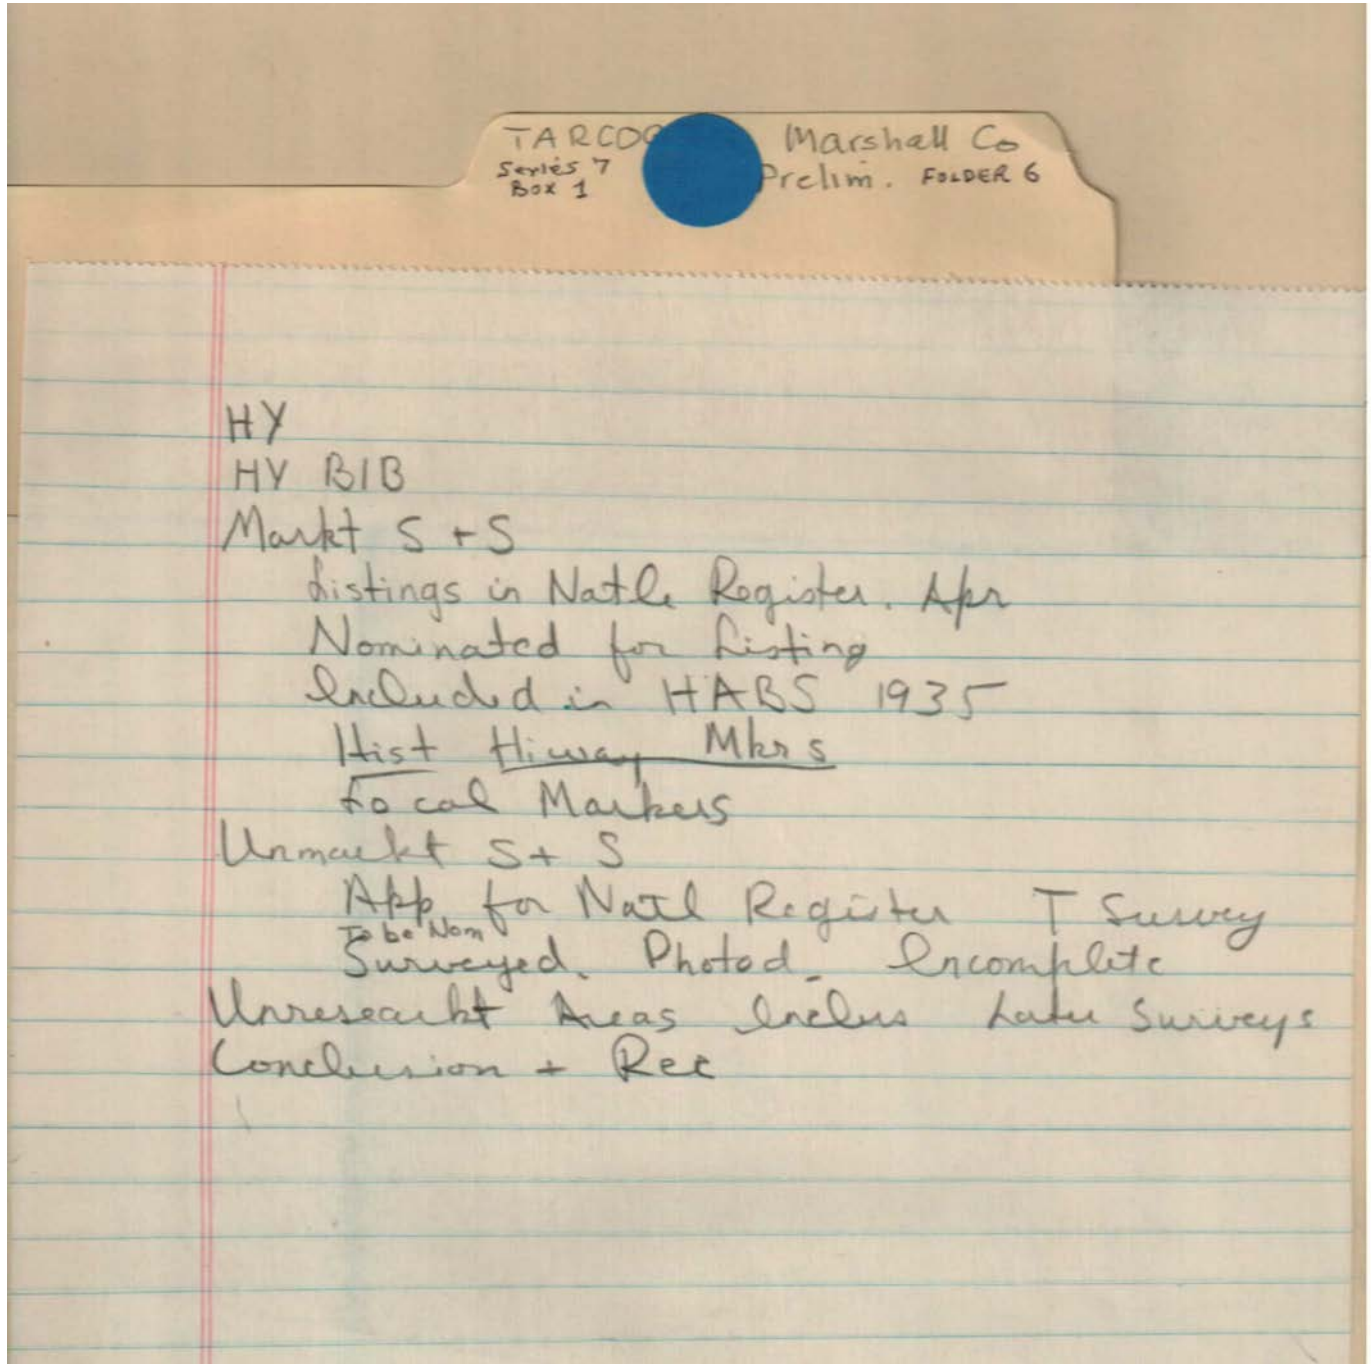 TARCOG Marshall Co
Series 7 Prelim. FOLDER 6
Box 1
HY
HY BIB
Markt S + S
Listings in Natl Register. Apr
Nominated for Listing
Included in HABS 1935
Hist Hiway Mkrs
Local Markers
Unmarkt S + S
App for Natl Register T Survey
To be Nom
Surveyed. Photod. Incomplete
Unresearkt Areas Inclus Later Surveys
Conclusion + Rec